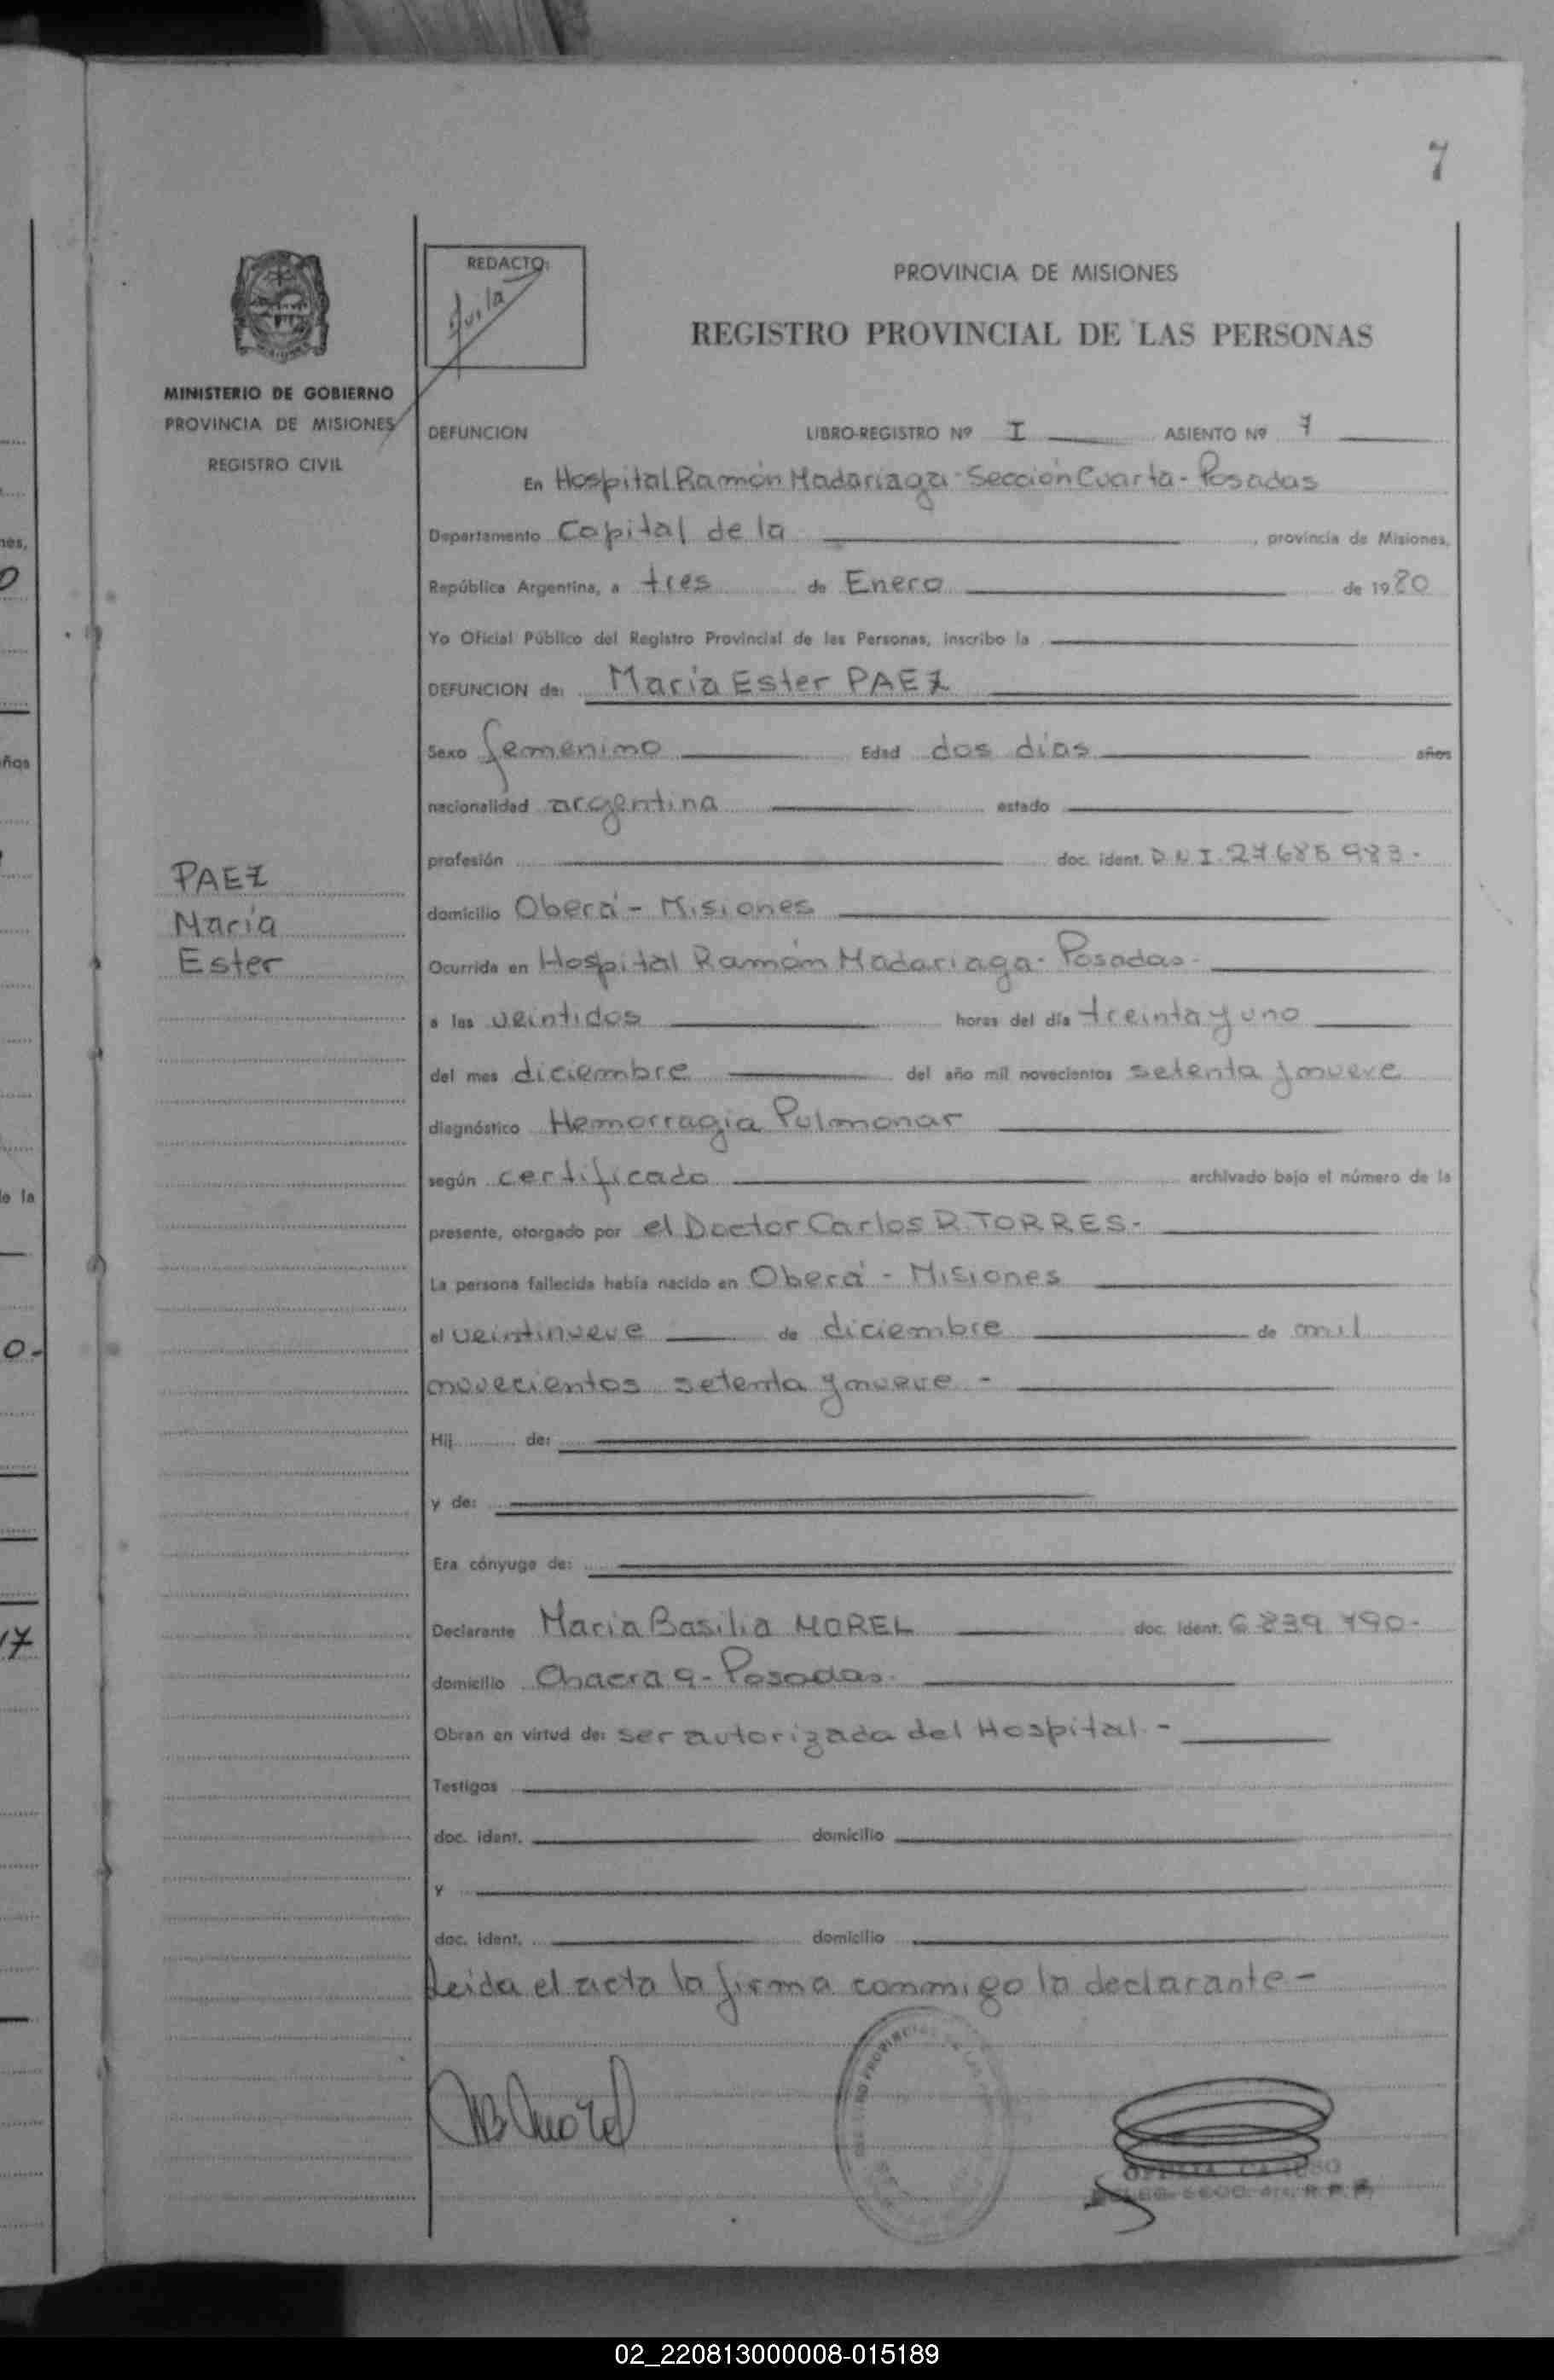 7
REDACTO:
Avila
PROVINCIA DE MISIONES
REGISTRO PROVINCIAL DE LAS PERSONAS
MINISTERIO DE GOBIERNO
PROVINCIA DE MISIONES
REGISTRO CIVIL
DEFUNCION LIBRO-REGISTRO Nº I ASIENTO Nº 7
En Hospital Ramón Madariaga - Sección Cuarta - Posadas
Departamento Capital de la , provincia de Misiones,
República Argentina, a tres de Enero de 1980
Yo Oficial Público del Registro Provincial de las Personas, inscribo la
DEFUNCION de: María Ester PAEZ
Sexo femenino Edad dos días años
nacionalidad argentina estado
profesión doc. ident. D.N.I. 27.685.983.
PAEZ
María
Ester
domicilio Oberá - Misiones
Ocurrida en Hospital Ramón Madariaga - Posadas -
a las veintidos horas del día treinta y uno
del mes diciembre del año mil novecientos setenta y nueve
diagnóstico Hemorragia Pulmonar
según certificado archivado bajo el número de la
presente, otorgado por el Doctor Carlos R. TORRES.-
La persona fallecida había nacido en Oberá - Misiones
el veintinueve de diciembre de mil
novecientos setenta y nueve -
Hij de:
y de:
Era cónyuge de:
Declarante María Basilia MOREL doc. ident. 6.839.790-
domicilio Chacra 9 - Posadas.
Obran en virtud de: ser autorizada del Hospital -
Testigos
doc. ident. domicilio
y
doc. ident. domicilio
Leída el acta la firma conmigo la declarante -
MBMorel
02_220813000008-015189